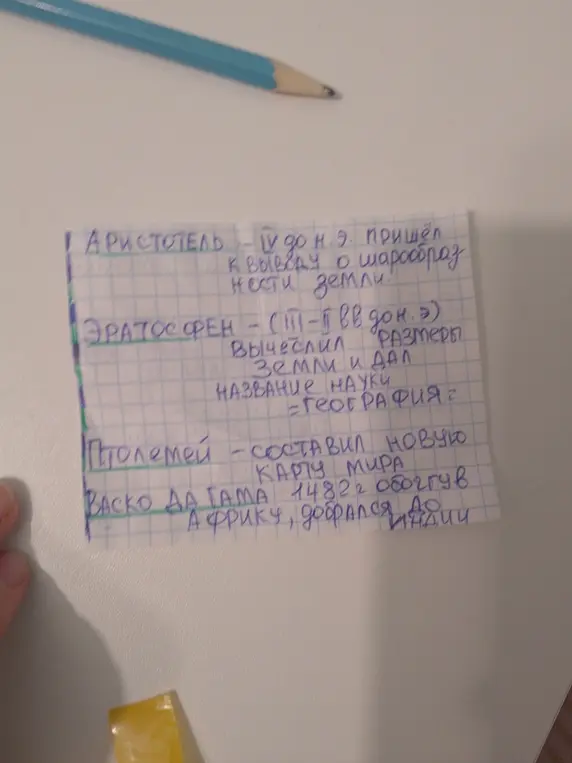 АРИСТОТЕЛЬ - IV до н.э. пришёл
к выводу о шарообраз
ности земли.
ЭРАТОСФЕН - (III-II вв до н.э)
вычеслил размеры
земли и дал
название науки
=География=
Птолемей - составил новую
карту мира
ВАСКО ДА ГАМА 1482г обоггув
Африку, добрался до
индии